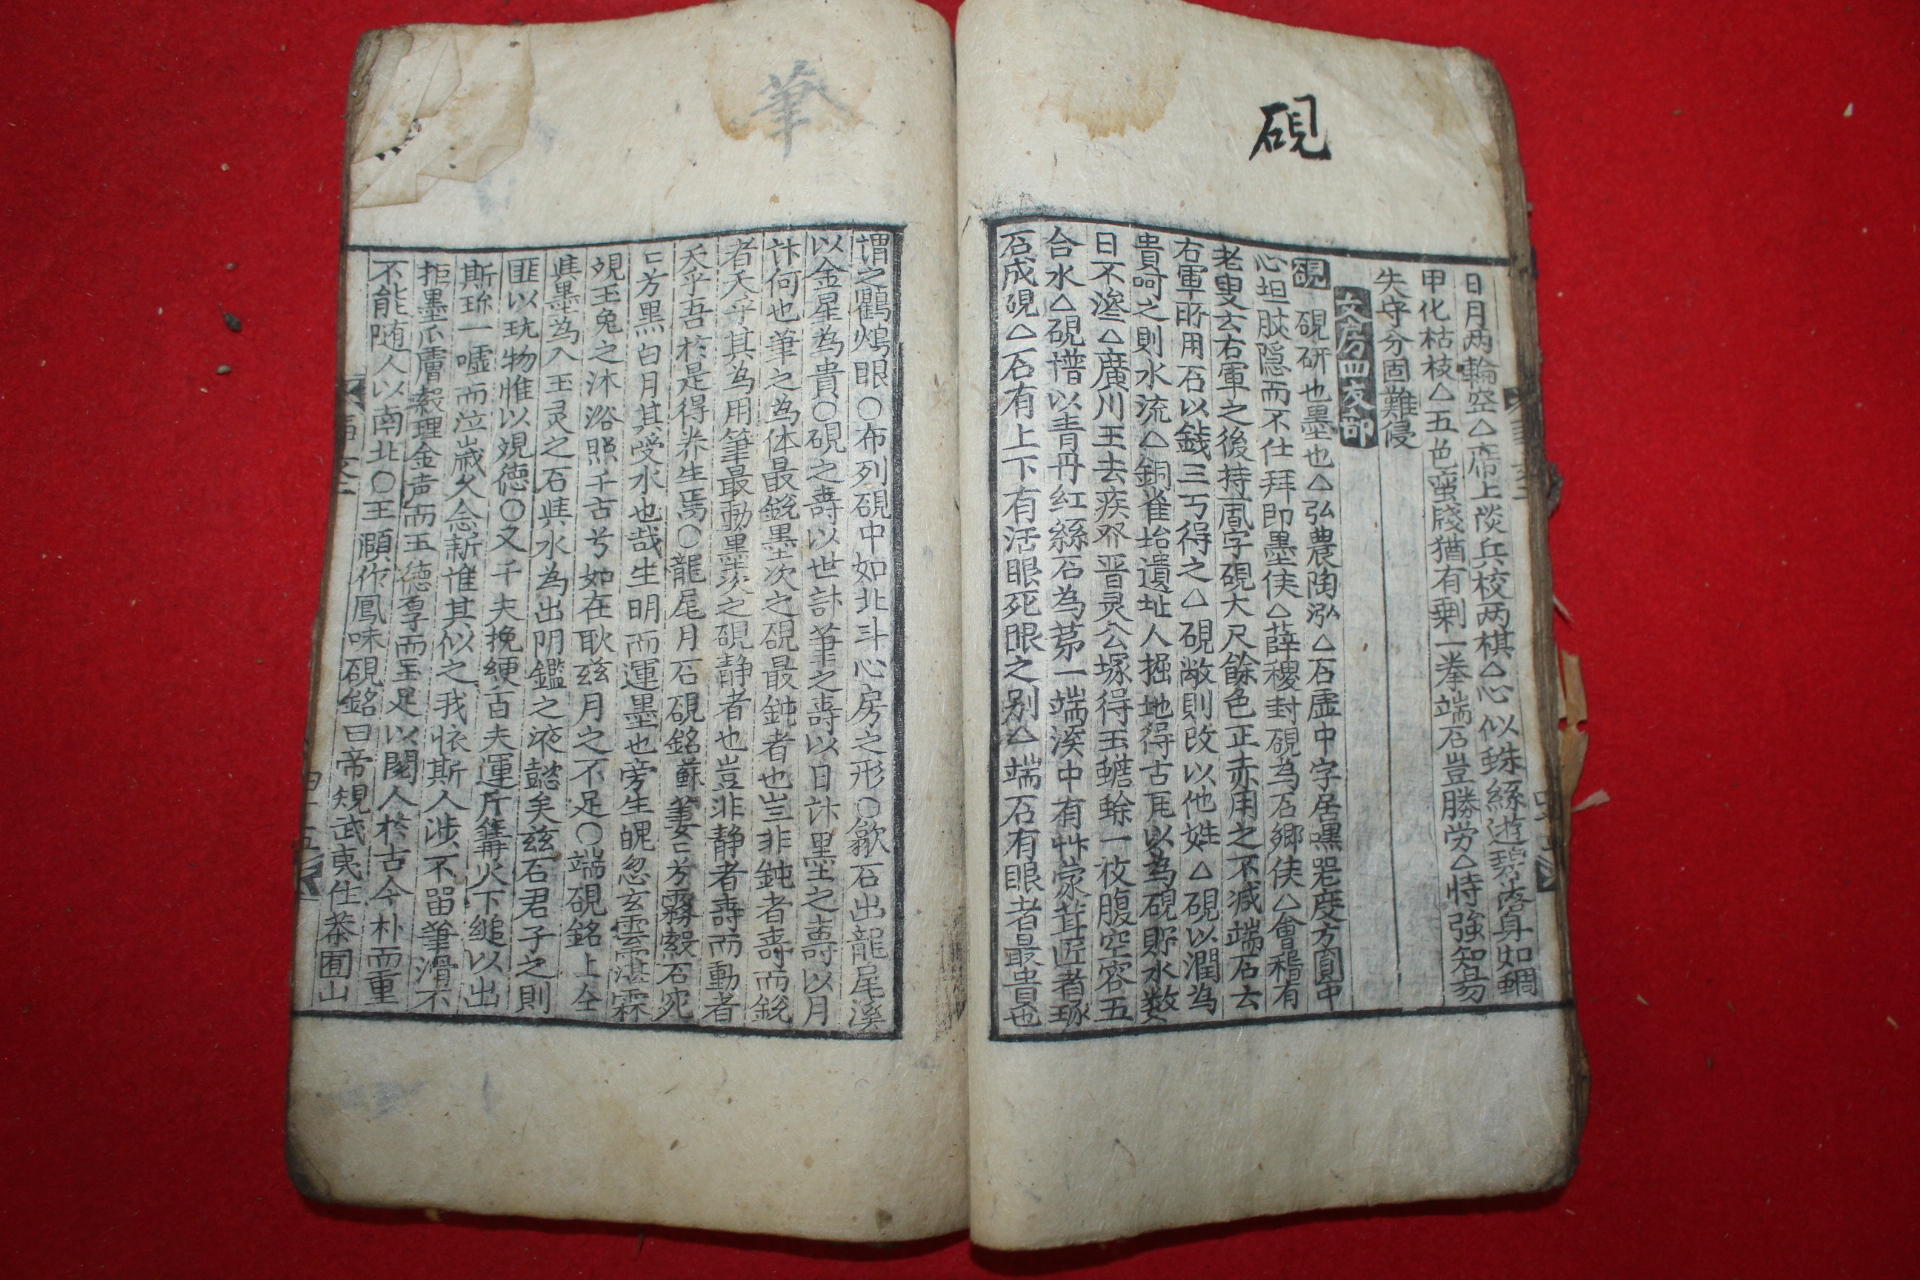 硯
日月两輪空△席上談兵校两棋△心似蛛絲遊碧落身如蜩
甲化枯枝△五色蛮牋猶有剩一拳端石豈勝劳△恃強知易
失守分固難侵
文房四友部
硯 硯研也墨也△弘農陶泓△石虚中字居嘿器度方圓中
心坦然隠而不仕拜即墨侯△薛稷封硯為石郷侯△會稽有
老叟云右軍之後持風字硯大尺餘色正赤用之不减端石云
右軍所用石以錢三万得之△硯敝則改以他姓△硯以潤為
貴呵之則水流△銅雀坮遺址人掘地得古瓦以為硯貯水数
日不滲△廣川王去疾発晋灵公塚得玉蟾蜍一枚腹空容五
合水△硯譜以青丹红絲石為苐一端溪中有艸蒙茸匠者琢
石成硯△石有上下有活眼死眼之别△端石有眼者最貴也
筆
謂之鸜鵒眼○布列硯中如北斗心房之形○歙石出龍尾溪
以金星為貴○硯之壽以世計筆之壽以日計墨之壽以月
計何也筆之為体最銳墨次之硯最鈍者也豈非鈍者壽而銳
者夭乎其為用筆最動墨次之硯静者也豈非静者壽而動者
夭乎吾於是得养生焉○龍尾月石硯銘蘇萋萋兮霧縠石宛
宛兮黑白月其受水也哉生明而運墨也旁生魄忽玄雲湛霖
覌玉兔之沐浴照千古兮如在耿玆月之不足○端硯銘上仝
與墨為入玉灵之石與水為出阴鑑之液懿矣玆石君子之則
匪以玩物惟以覌徳○又千夫挽綆百夫運斤篝火下縋以出
斯珎一嘘而泣歲久念新惟其似之我怀斯人涉不留筆滑不
拒墨爪膚縠理金声而玉徳尊而玉足以閲人於古今朴而重
不能随人以南北○王頤作鳳咮硯銘曰帝䂓武夷作茶囿山